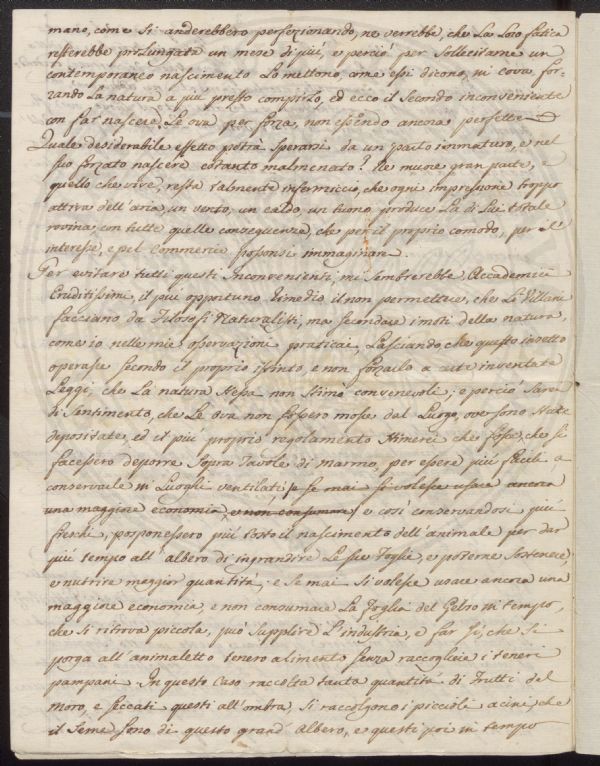 mano, come si anderebbero perfezionando, ne verrebbe, che La Loro fatica
resterebbe prolungata un mese di più, e perciò per sollecitarne un
contemporaneo nascimento Lo mettono, come essi dicono, in cova, for-
zando La natura a più presto compirlo, ed ecco il secondo inconveniente
con far nascere Le ova per forza, non essendo ancora perfette
Quale desiderabile effetto potrà sperarsi da un parto immaturo, e nel
suo forzato nascere cotanto malmenato? Ne muore gran parte, e
quello che vive, resta talmente infermiccio, che ogni impressione troppo
attiva dell'aria, un vento, un caldo, un tuono produce La di Lui totale
rovina, con tutte quelle conseguenze, che per il proprio comodo, per l'
interesse, e pel Commercio possonsi immaginare.
Per evitare tutti questi Inconvenienti, mi sembrerebbe, Accademici
Eruditissimi, il più opportuno rimedio il non permettere, che Le Villane
facciano da Filosofi Naturalisti, ma secondare i moti della natura,
come io nelle mie osservazioni praticai, Lasciando, che questo insetto
operasse secondo il proprio istinto, e non forzarlo a arte inventate
Leggi, che La natura stessa non stimò convenevoli; e perciò sarei
di sentimento, che Le ova non fossero mosse dal Luogo, ove sono state
depositate, ed il più proprio regolamento stimerei che fosse, che si
facessero deporre sopra Tavole di marmo, per essere più facili a
conservarle in Luoghi ventilati se mai si volesse usare ancora
una maggiore economia, e non consumare e così conservandosi più
freschi, posponessero più tosto il nascimento dell'animale per dar
più tempo all'albero di ingrandire Le sue foglie, e poterne sostenere,
e nutrire maggior quantità; e se mai si volesse usare ancora una
maggiore economia, e non consumare La foglia del Gelso in tempo,
che si ritrova piccola, può supplire L'industria, e far sì, che si
porga all'animaletto tenero alimento senza raccogliere i teneri
pampani. In questo caso raccolta tanta quantità di frutti del
moro, e seccati questi all'ombra, si raccolgono i piccioli acini, che
il seme sono di questo grand'Albero, e questi poi in tempo